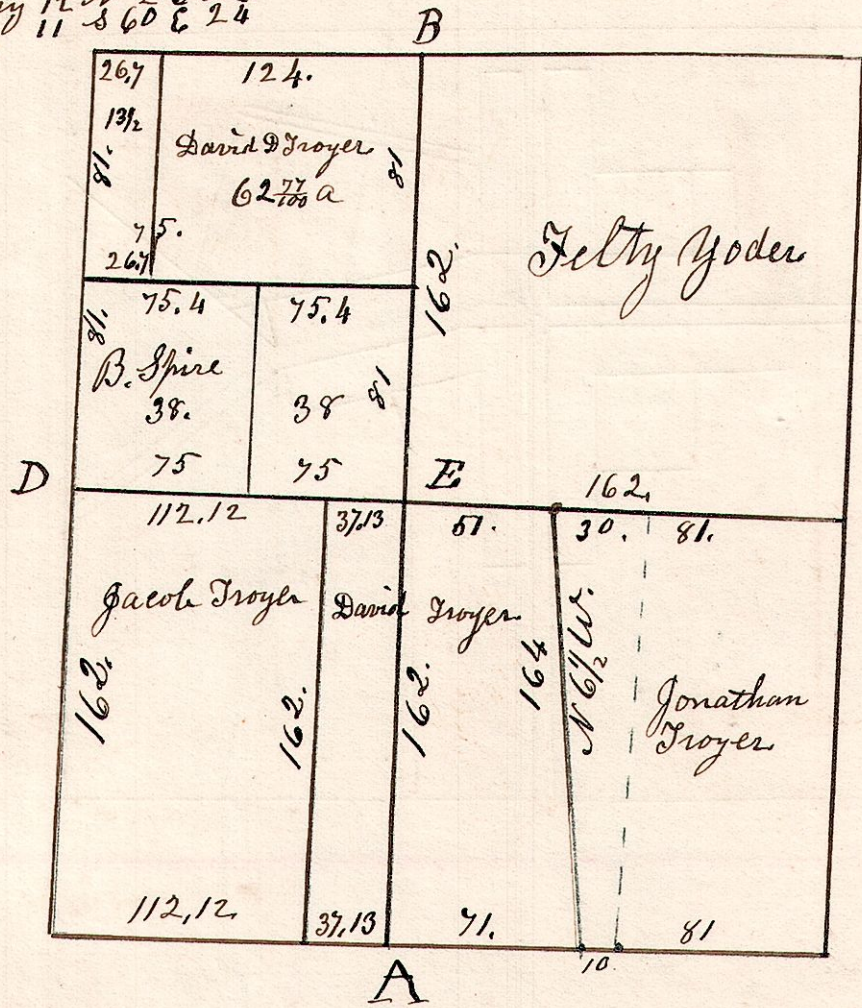 11 S 60 E 24
B
26,7 124.
13½
81.
David D Troyer
62 77/100 a
81
75.
26.7
162.
Felty Yoder
75.4 75.4
81.
B. Spire
38. 38
81
75 75
D
E
162.
112.12 37,13 51. 30. 81.
Jacob Troyer
David Troyer
162.
162.
162.
164
N 6½ W.
Jonathan
Troyer
112,12. 37,13 71. 81
10
A